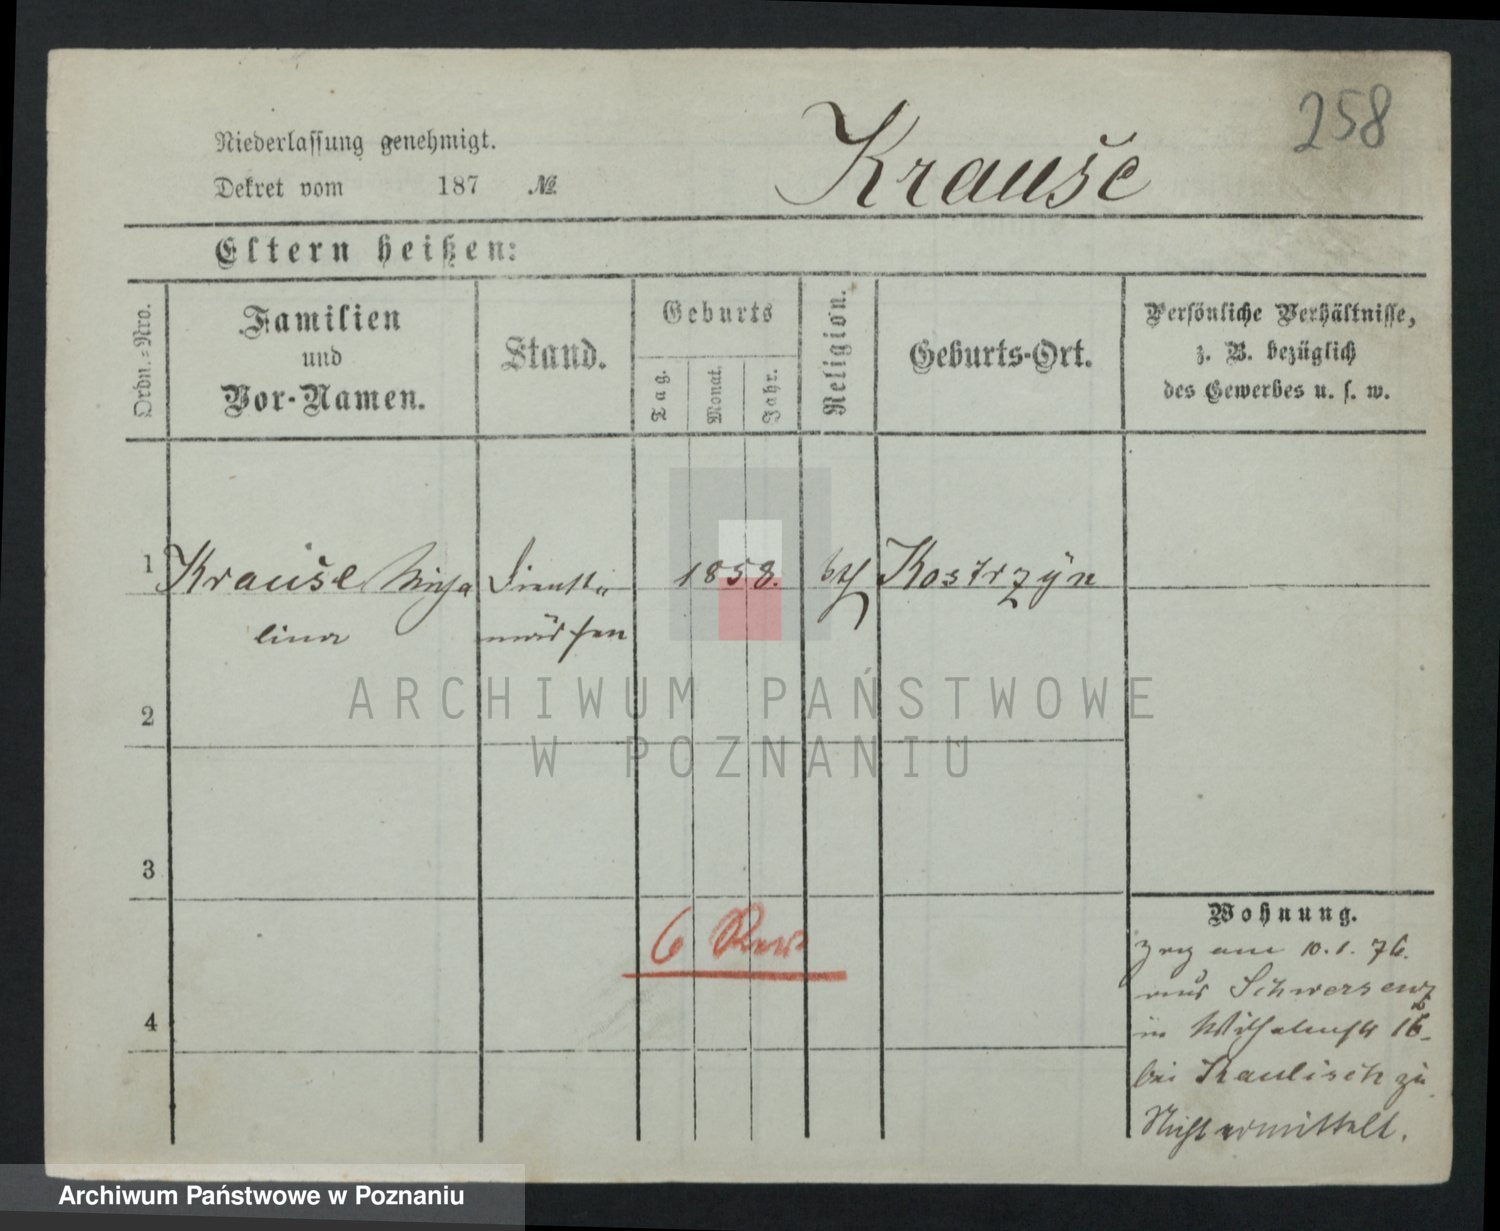 258
Niederlassung genehmigt.
Dekret vom 187 No.
Krause
Eltern heißen:
Ordn.=Nro.
Familien
und
Vor-Namen.
Stand.
Geburts
Tag.
Monat.
Jahr.
Religion.
Geburts-Ort.
Persönliche Verhältnisse,
z. B. bezüglich
des Gewerbes u. s. w.
1 Krause Micha Dienst= 1858. kth Kostrzyn
lina mädchen
ARCHIWUM PAŃSTWOWE
W POZNANIU
2
3
4
6
Wohnung.
am 10.1.76.
aus Schwersenz
in Wilhelmstr 16
bei zu
Nicht ermittelt.
Archiwum Państwowe w Poznaniu